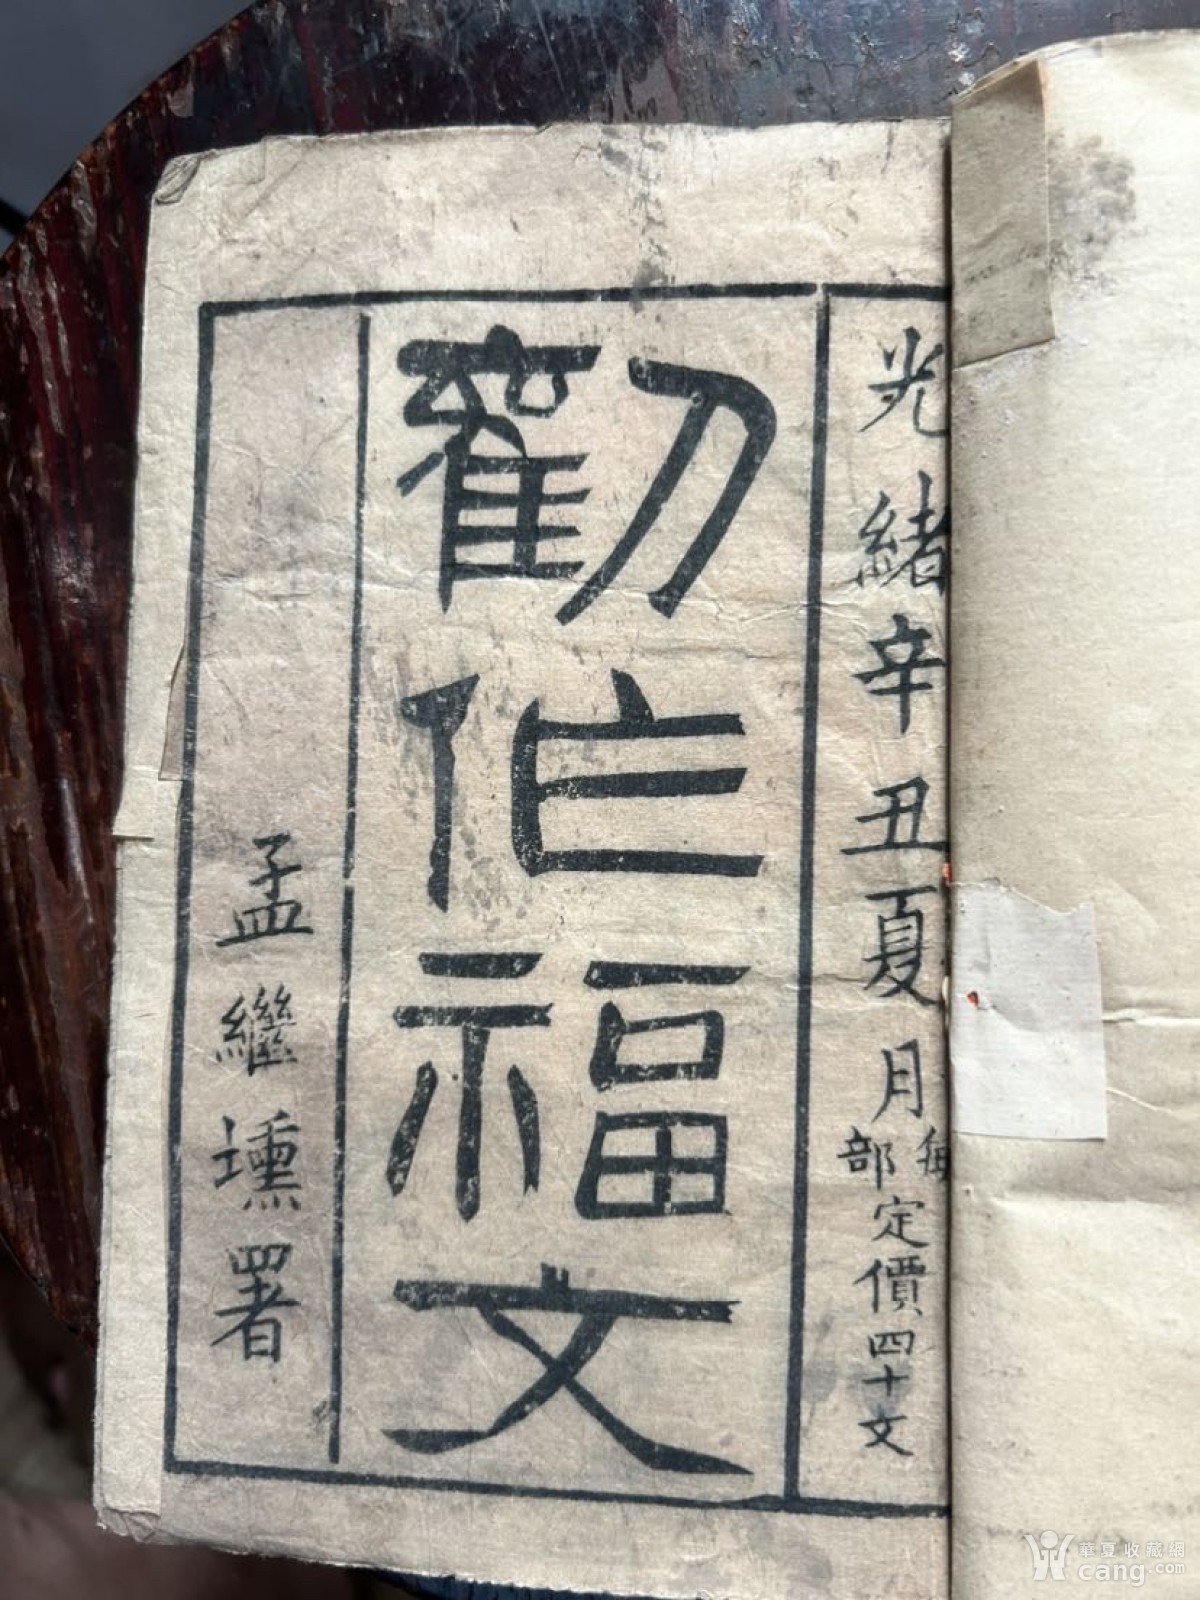 光緒辛丑夏月
每部定價四十文
勸作福文
孟繼壎署
華夏收藏網
cang.com